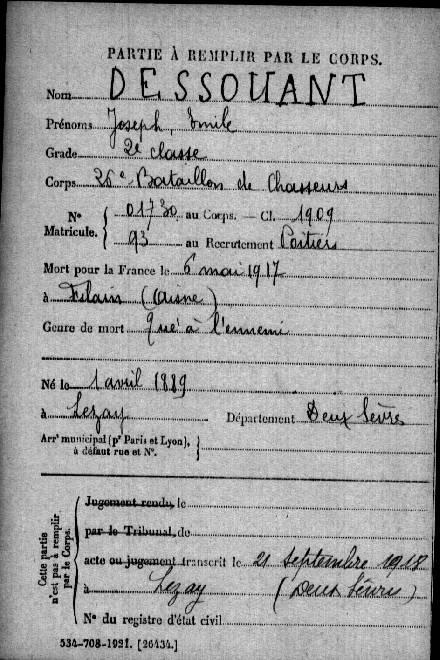 PARTIE À REMPLIR PAR LE CORPS.
Nom DESSOUANT
Prénoms Joseph, Emile
Grade 2e classe
Corps 26e Bataillon de Chasseurs
N° 01730 au Corps. — Cl. 1909
Matricule. 93 au Recrutement Poitiers
Mort pour la France le 6 mai 1917
à Filain (Aisne)
Genre de mort Tué à l'ennemi
Né le 1 avril 1889
à Lezay Département Deux Sèvres
Arr^t municipal (p^r Paris et Lyon),
à défaut rue et N°.
Cette partie
n'est pas à remplir
par le Corps.
Jugement rendu le
par le Tribunal de
acte ou jugement transcrit le 21 septembre 1918
à Lezay (Deux Sèvres)
N° du registre d'état civil
534-708-1921. [26434.]